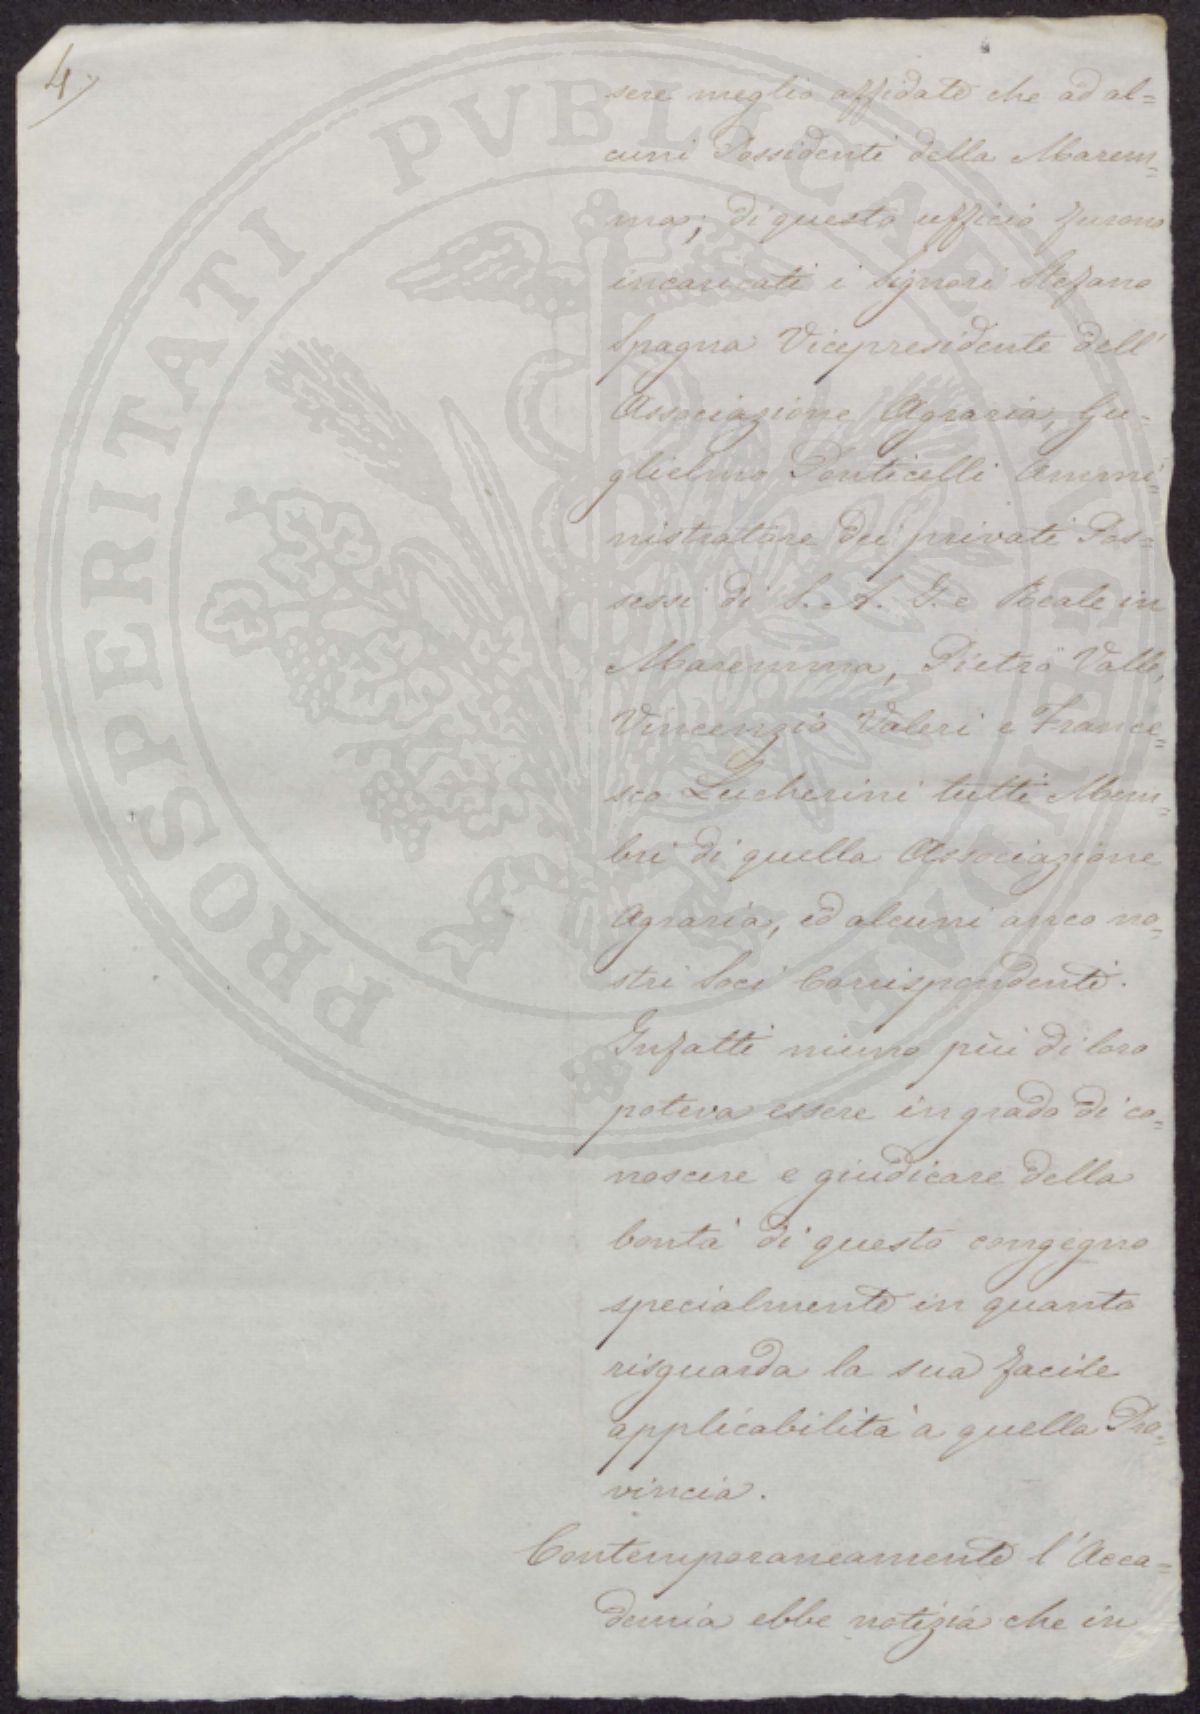 4
sere meglio affidate che ad al=
cuni Possidenti della Marem=
ma; di questo ufficio furono
incaricati i Signori Stefano
Spagna Vicepresidente dell'
Associazione Agraria, Gu=
glielmo Ponticelli Ammi=
nistratore dei privati Pos=
sessi di S. A. I. e Reale in
Maremma, Pietro Valle,
Vincenzio Valeri e France=
sco Lucherini tutti Mem=
bri di quella Associazione
Agraria, ed alcuni anco no=
stri Soci Corrispondenti.
Infatti niuno più di loro
poteva essere in grado di co=
noscere e giudicare della
bontà di questo congegno
specialmente in quanto
risguarda la sua facile
applicabilità a quella Pro=
vincia.
Contemporaneamente l'Acca=
demia ebbe notizia che in
PROSPERITATI PVBLICAE AVGENDAE